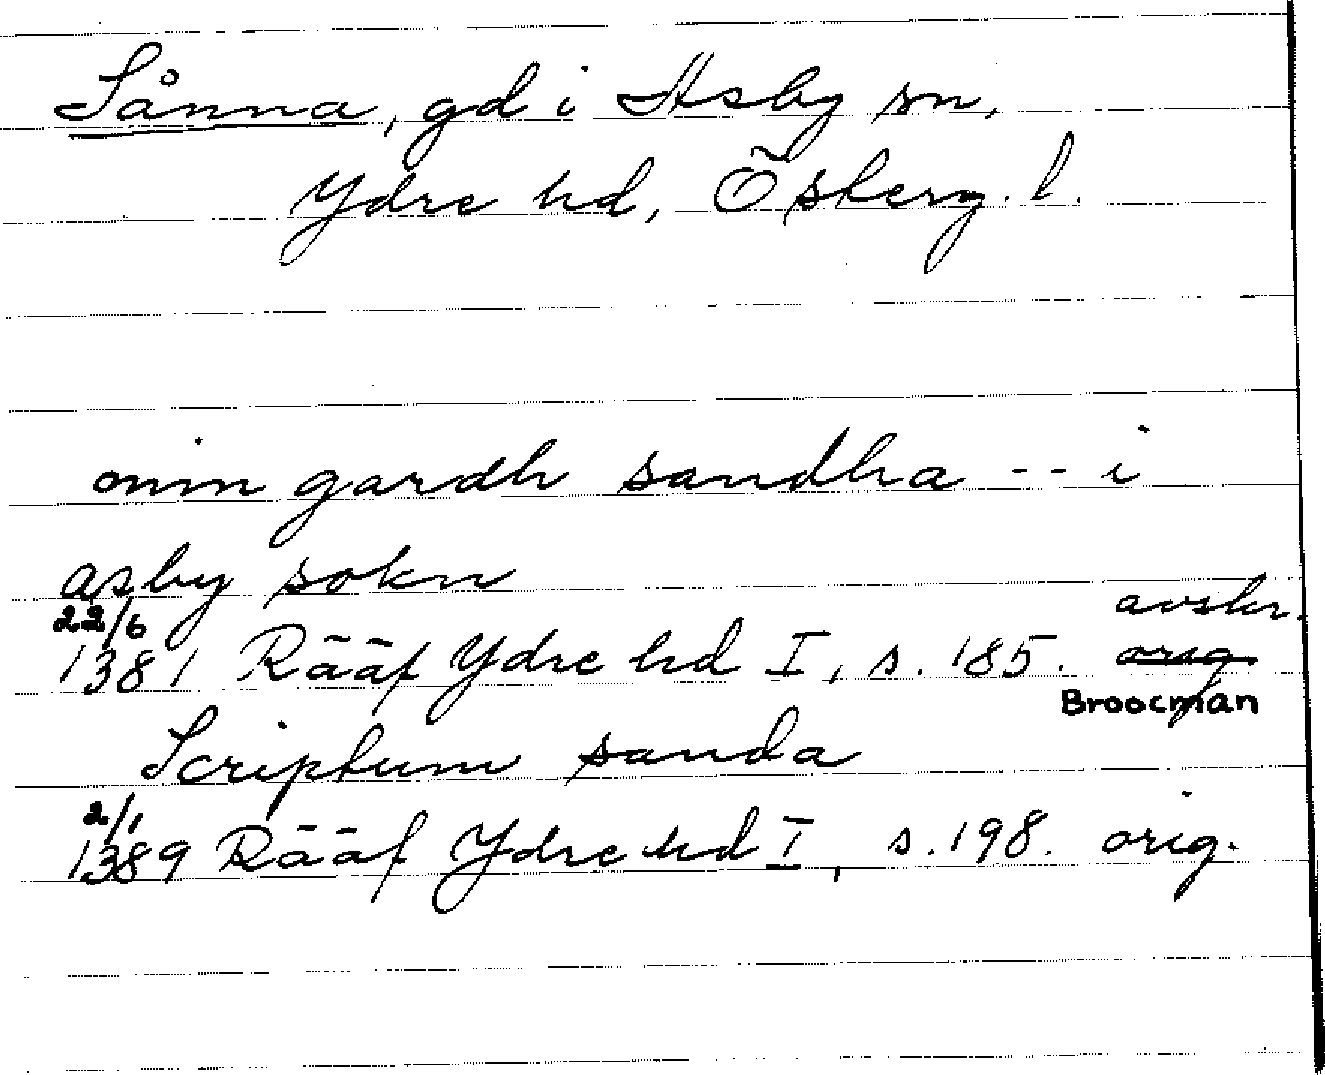 Sånna, gd i Asby sn,
Ydre hd, Österg. l.
min gardh sandha -- i
asby sokn
avskr.
22/6
1381 Rääf Ydre hd I, s. 185. orig.
Broocman
Scriptum sanda
2/1
1389 Rääf Ydre hd I, s. 198. orig.